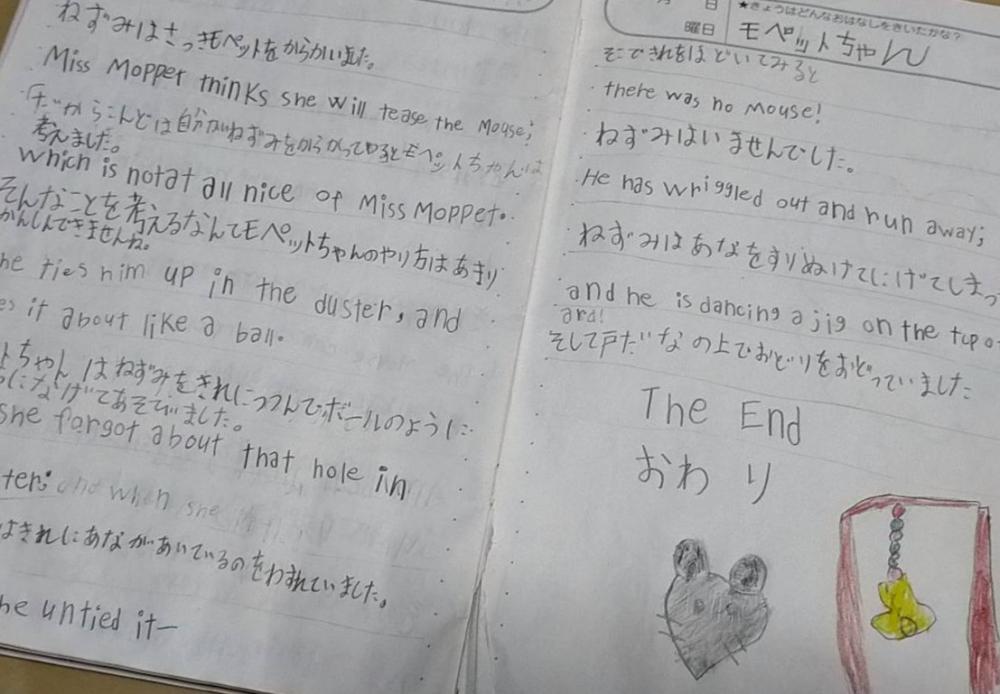 ねずみはさっきモペットをからかいました。
Miss Moppet thinks she will tease the Mouse;
だからこんどは自分がねずみをからかってやるとモペットちゃんは
考えました。
which is not at all nice of Miss Moppet.
そんなことを考えるなんてモペットちゃんのやり方はあまり
かんしんできませんね。
he ties him up in the duster, and
es it about like a ball.
トちゃんはねずみをきれにつつんでボールのように
になげてあそでいました。
she forgot about that hole in
ter; and when she
はきれにあながあいているのをわすれていました。
he untied it—
月 日
曜日
★きょうはどんなおはなしをきいたかな?
モペットちゃん
そこできれをほどいてみると
there was no Mouse!
ねずみはいませんでした。
He has wriggled out and run away;
ねずみはあなをすりぬけてにげてしまっ
and he is dancing a jig on the top o
ard!
そして戸だなの上でおどりをおどっていました
The End
おわり